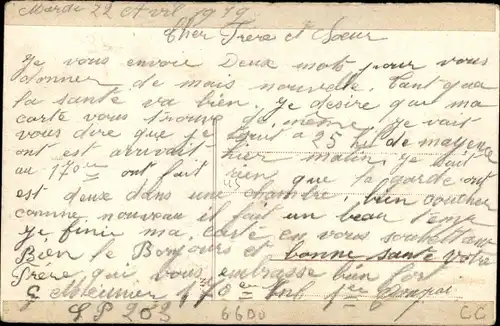 Mardi 22 Avril 1919
Cher Frère et Soeur
Je vous envoie Deux mots pour vous
donner de mais nouvelle. Tant qua
la santé va bien. Je desire que ma
carte vous trouve de même. Je vait
vous dire que je tout a 25 de mayence
ont est arrivait hier matin. Je suit
au 170 ont fait rien que la garde ont
est deux dans une chambre, bien coucher
comme nouveau il fait un beau temp
Je finie ma carte en vous souhaittant
Bien le Bonjours et bonne santé Votre
Frère qui vous embrasse bien for
G Meunier 170 Inf 1re Compai
SP 203 6600 CC